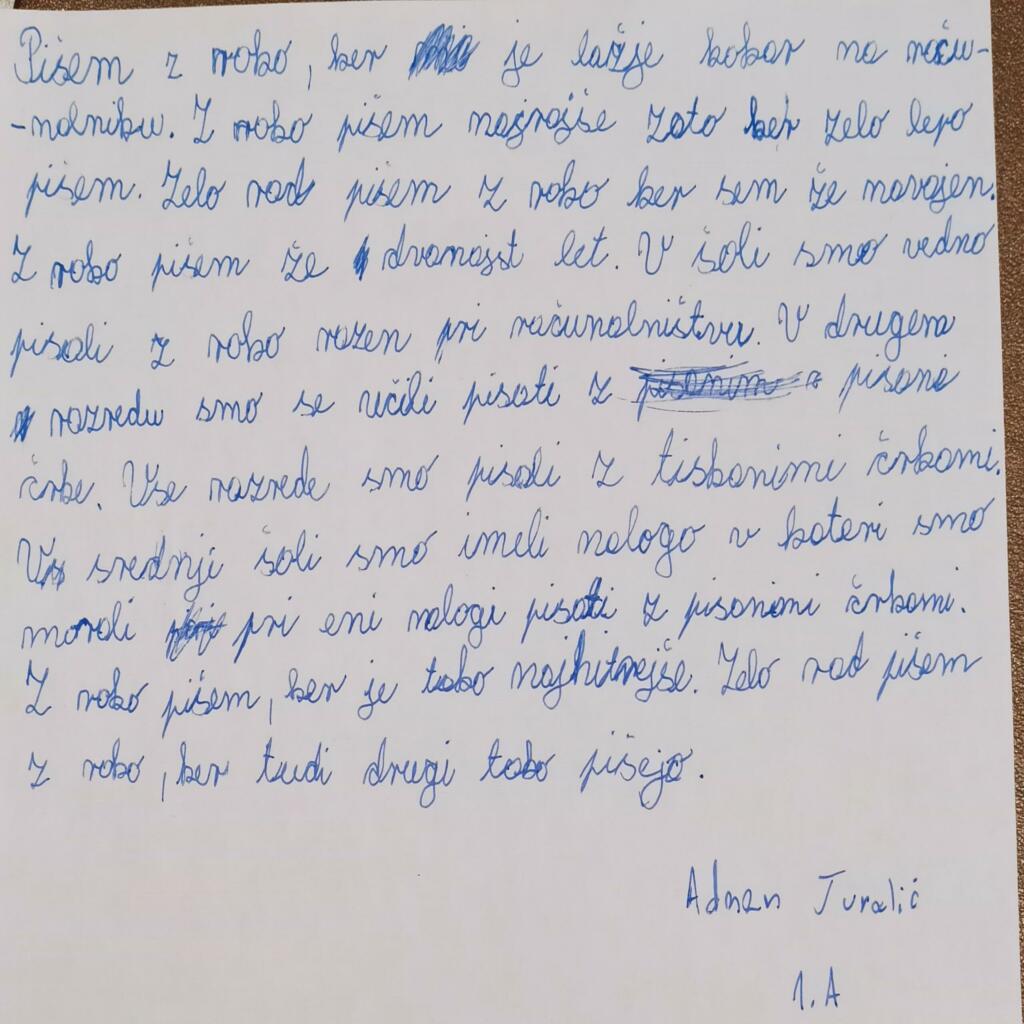 Pišem z roko, ker je lažje kokor na raču-
-nalniku. Z roko pišem najrajše zato ker zelo lepo
pišem. Zelo rad pišem z roko ker sem že navajen.
Z roko pišem že dvanajst let. V šoli smo vedno
pisali z roko razen pri računalništvu. V drugem
razredu smo se učili pisati z pisane
črke. Vse razrede smo pisali z tiskanimi črkami.
V srednji šoli smo imeli nalogo v kateri smo
morali pri eni nalogi pisati z pisanimi črkami.
Z roko pišem, ker je tako najhitrejše. Zelo rad pišem
z roko, ker tudi drugi tako pišejo.
Adnan Turalić
1.A